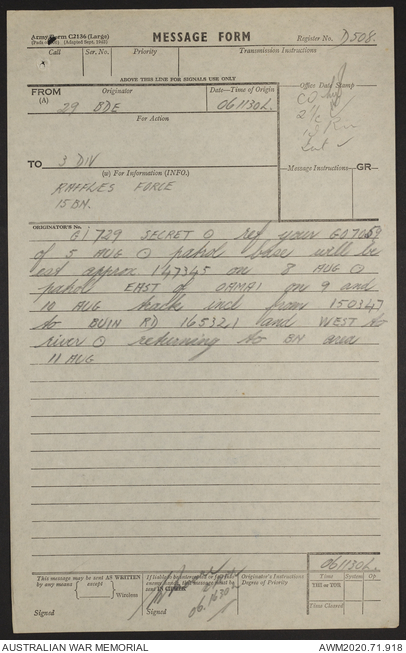 Army Form C2136 (Large)
(Pads of 100) (Adapted Sept. 1942)
MESSAGE FORM
Register No. D508.
Call
Ser. No.
Priority
Transmission Instructions
ABOVE THIS LINE FOR SIGNALS USE ONLY
FROM
(A)
Originator
29 BDE
Date—Time of Origin
061130L.
Office Date Stamp
CO
2 i/c
IO
For Action
TO 3 DIV
(w) For Information (INFO.)
RAFFLES FORCE
15 BN.
Message Instructions
GR
ORIGINATOR'S No.
G1729 SECRET O ref your GO7059
of 5 AUG O patrol base will be
est approx 147345 on 8 AUG O
patrol EAST of OAMAI on 9 and
10 AUG track incl from 150347
to BUIN RD 165321 and WEST to
river O returning to BN area
11 AUG
061130L.
This message may be sent AS WRITTEN
by any means (except) Wireless
Signed
If liable to be intercepted or fall into
enemy hands, this message must be
sent IN CIPHER
Signed
061630L
Originator's Instructions
Degree of Priority
Time
System
Op.
THI or TOR
Time Cleared
AUSTRALIAN WAR MEMORIAL
AWM2020.71.918